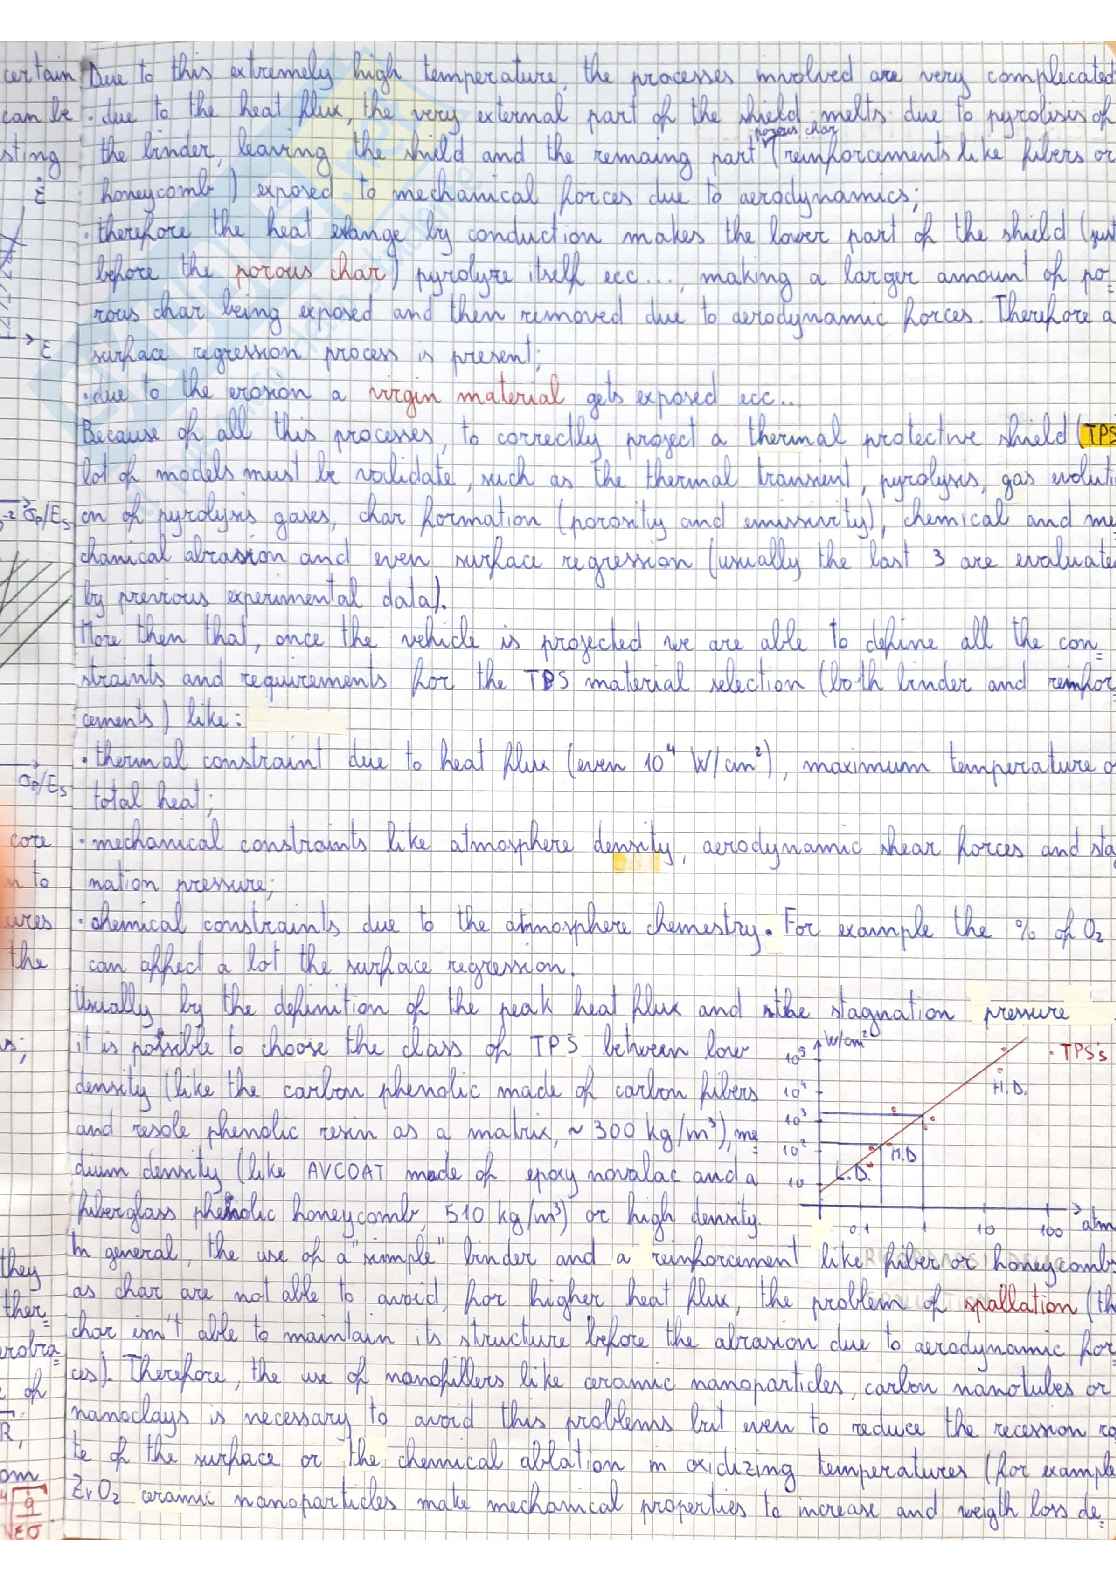 certain Due to this extremely high temperature, the processes involved are very complecated
can be · due to the heat flux, the very external part of the shield melts due to pyrolisis of
sting the binder, leaving the shild and the remaing part (reinforcements like fibers or
porous char
Ė honeycomb) exposed to mechanical forces due to aerodynamics;
· therefore the heat exange by conduction makes the lower part of the shield (just
before the porous char) pyrolyze itself ecc..., making a larger amount of po=
rous char being exposed and then removed due to aerodynamic forces. Therefore a
ε surface regression process is present;
· due to the erosion a virgin material gets exposed ecc..
Because of all this processes, to correctly project a thermal protective shield (TPS
lot of models must be validate, such as the thermal transient, pyrolysis, gas evoluti
σp/Es on of pyrolysis gases, char formation (porosity and emissivity), chemical and me
chanical abrasion and even surface regression (usually the last 3 are evaluate
by previous experimental data).
More then that, once the vehicle is projected we are able to define all the con=
straints and requirements for the TPS material selection (both binder and reinfor
cements) like:
· thermal constraint due to heat flux (even 10⁴ W/cm²), maximum temperature o
σp/Es total heat;
core · mechanical constraints like atmosphere density, aerodynamic shear forces and stag
n to nation pressure;
ures · chemical constraints due to the atmosphere chemestry. For example the % of O₂
the can affect a lot the surface regression.
Usually by the definition of the peak heat flux and the stagnation pressure
it is possible to choose the class of TPS between low
density (like the carbon phenolic made of carbon fibers
and resole phenolic resin as a matrix, ~ 300 kg/m³), me=
dium density (like AVCOAT made of epoxy novalac and a
fiberglass phenolic honeycomb, 510 kg/m³) or high density.
W/cm²
10⁵
10⁴
10³
10²
10
· TPS's
H.D.
M.D
L.D.
0.1 1 10 100 atm
In general, the use of a "simple" binder and a reinforcement like fiber or honeycombs
they as char are not able to avoid, for higher heat flux, the problem of spallation (the
ther= char isn't able to maintain its structure before the abrasion due to aerodynamic for=
ces). Therefore, the use of nanofillers like ceramic nanoparticles, carbon nanotubes or
of nanoclays is necessary to avoid this problems but even to reduce the recession ra
R, te of the surface or the chemical ablation in oxidizing temperatures (for example
om ZrO₂ ceramic nanoparticles make mechanical properties to increase and weigth loss de=
q̇
εσ